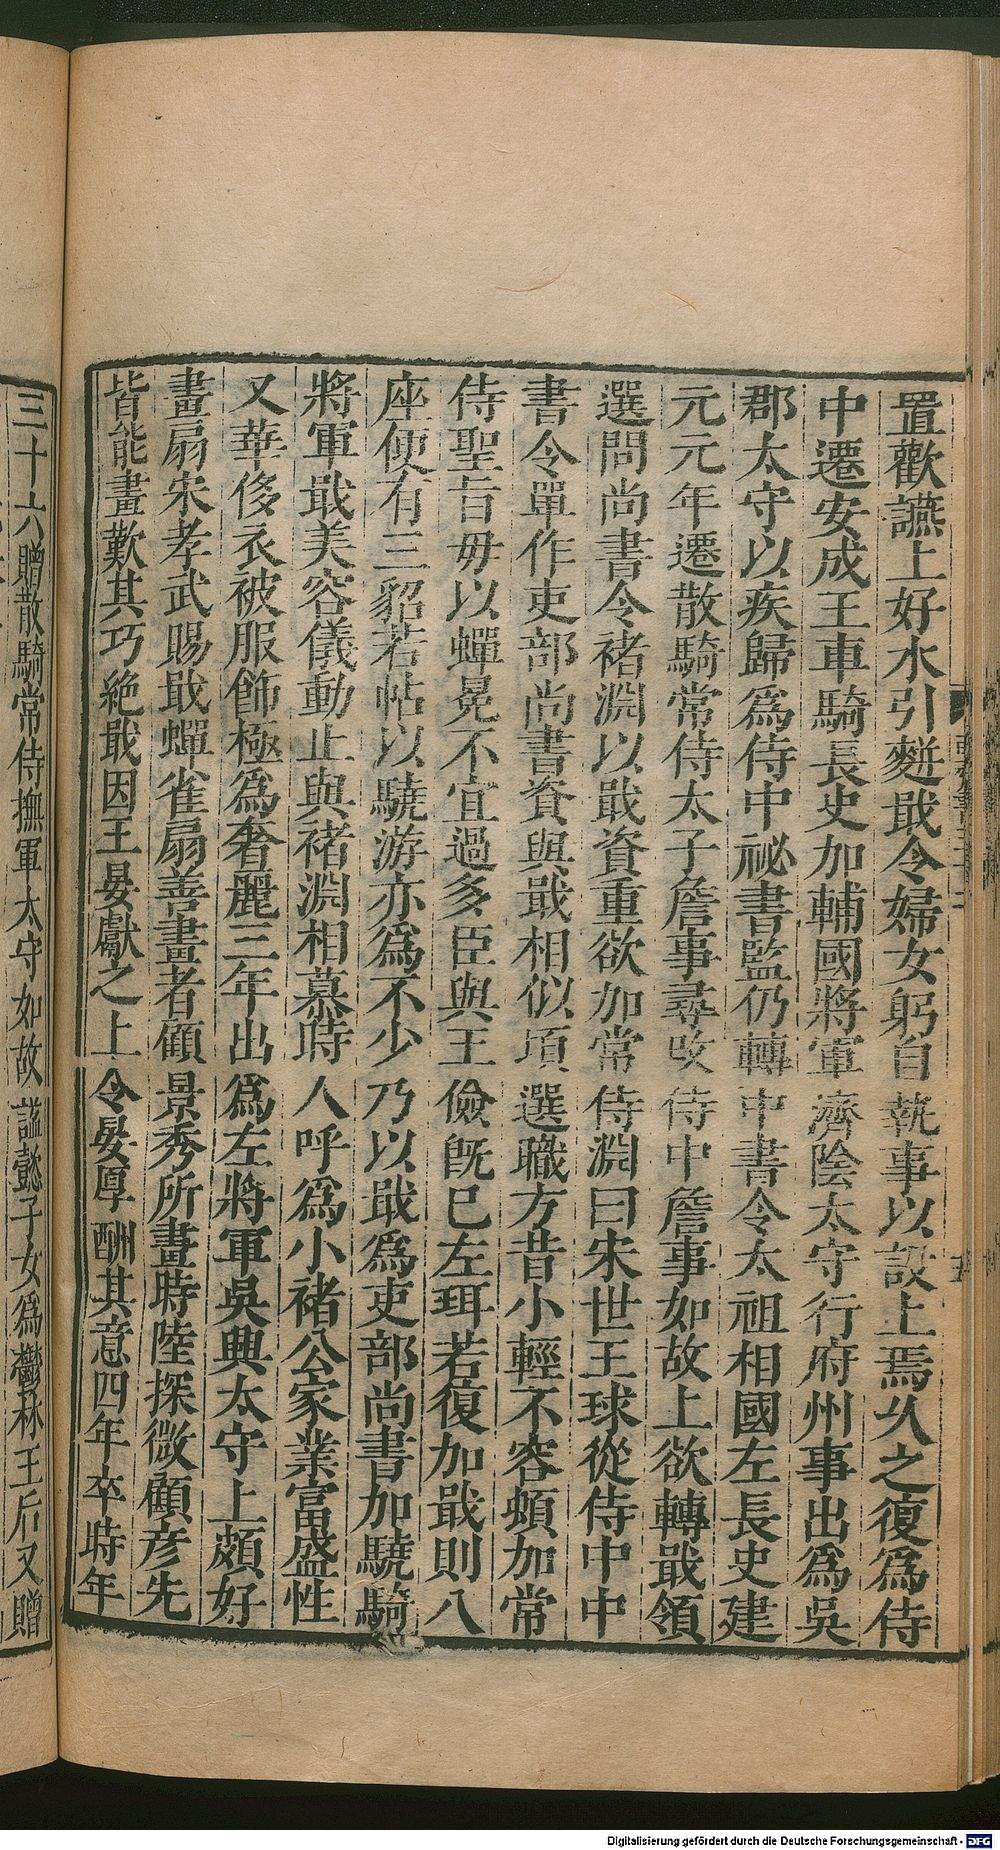 置歡讌上好水引麪戢令婦女躬自執事以設上焉久之復爲侍
中遷安成王車騎長史加輔國將軍濟陰太守行府州事出爲吳
郡太守以疾歸爲侍中祕書監仍轉中書令太祖相國左長史建
元元年遷散騎常侍太子詹事尋改侍中詹事如故上欲轉戢領
選問尚書令褚淵以戢資重欲加常侍淵曰宋世王球從侍中中
書令單作吏部尚書資與戢相似項選職方昔小輕不容頓加常
侍聖旨毋以蟬冕不宜過多臣與王儉旣已左珥若復加戢則八
座便有三貂若帖以驍游亦爲不少乃以戢爲吏部尚書加驍騎
將軍戢美容儀動止與褚淵相慕時人呼爲小褚公家業富盛性
又華侈衣被服飾極爲奢麗三年出爲左將軍吳興太守上頗好
畫扇宋孝武賜戢蟬雀扇善畫者顧景秀所畫時陸探微顧彥先
皆能畫歎其巧絶戢因王晏獻之上令晏厚酬其意四年卒時年
三十六贈散騎常侍撫軍太守如故諡懿子女爲鬱林王后又贈
Digitalisierung gefördert durch die Deutsche Forschungsgemeinschaft - DFG